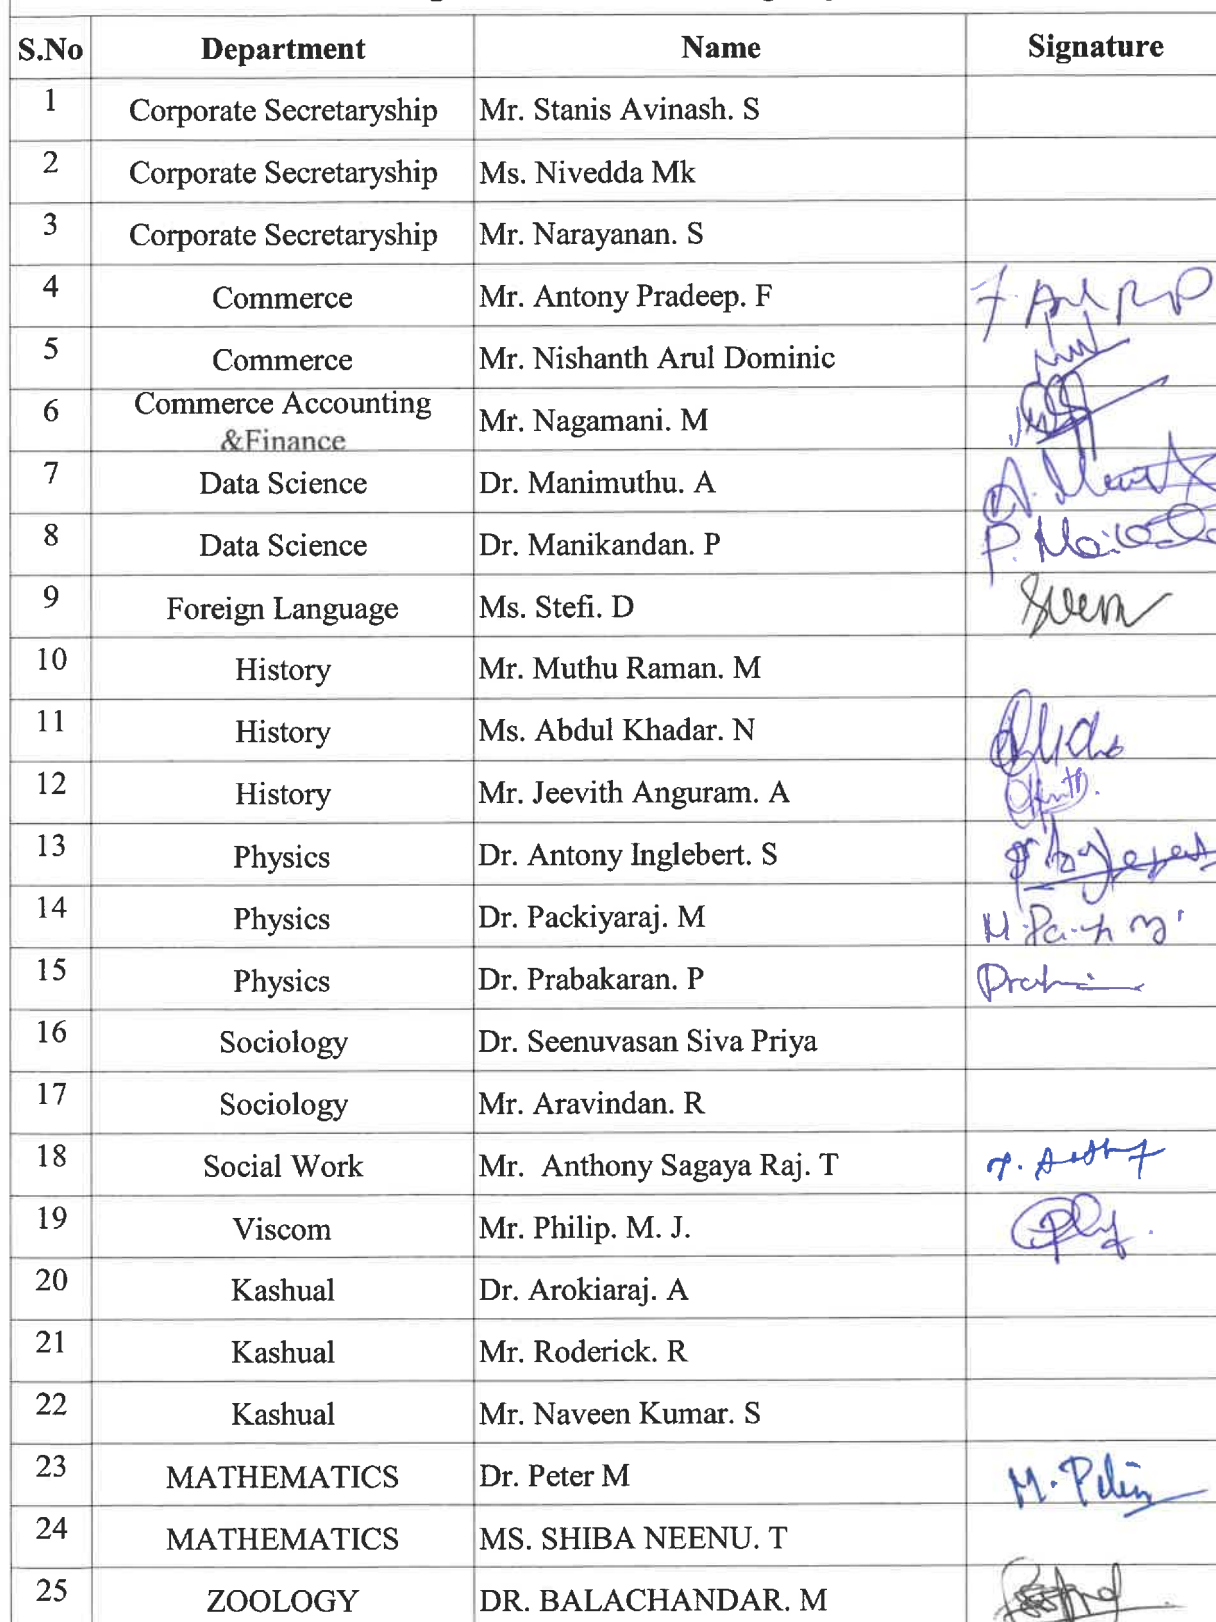 S.No Department Name Signature
1 Corporate Secretaryship Mr. Stanis Avinash. S
2 Corporate Secretaryship Ms. Nivedda Mk
3 Corporate Secretaryship Mr. Narayanan. S
4 Commerce Mr. Antony Pradeep. F
5 Commerce Mr. Nishanth Arul Dominic
6 Commerce Accounting Mr. Nagamani. M
&Finance
7 Data Science Dr. Manimuthu. A
8 Data Science Dr. Manikandan. P
9 Foreign Language Ms. Stefi. D
10 History Mr. Muthu Raman. M
11 History Ms. Abdul Khadar. N
12 History Mr. Jeevith Anguram. A
13 Physics Dr. Antony Inglebert. S
14 Physics Dr. Packiyaraj. M
15 Physics Dr. Prabakaran. P
16 Sociology Dr. Seenuvasan Siva Priya
17 Sociology Mr. Aravindan. R
18 Social Work Mr. Anthony Sagaya Raj. T
19 Viscom Mr. Philip. M. J.
20 Kashual Dr. Arokiaraj. A
21 Kashual Mr. Roderick. R
22 Kashual Mr. Naveen Kumar. S
23 MATHEMATICS Dr. Peter M
24 MATHEMATICS MS. SHIBA NEENU. T
25 ZOOLOGY DR. BALACHANDAR. M